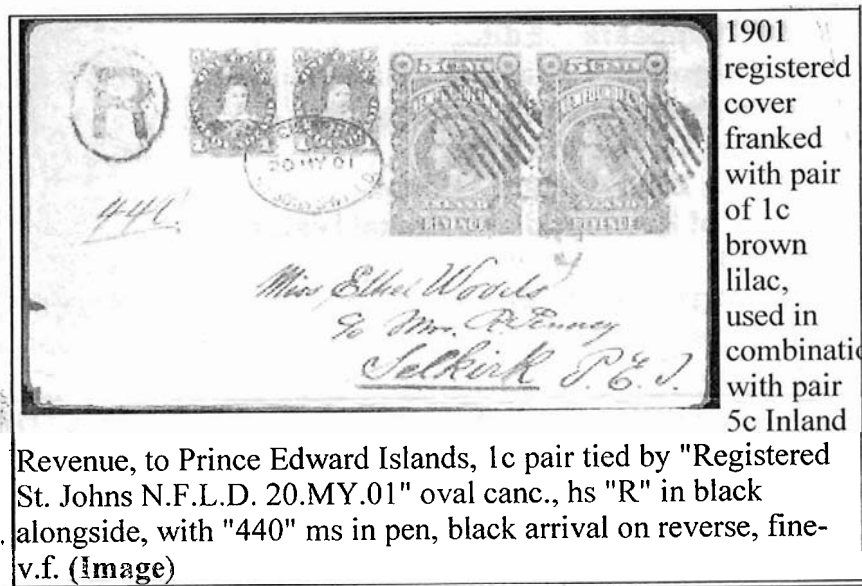 R
5 CENTS
5 CENTS
REVENUE
REVENUE
20 MY 01
440
Miss Ethel Woods
c/o Mrs. P. Penney
Selkirk P. E. I.
1901
registered
cover
franked
with pair
of 1c
brown
lilac,
used in
combinatio
with pair
5c Inland
Revenue, to Prince Edward Islands, 1c pair tied by "Registered
St. Johns N.F.L.D. 20.MY.01" oval canc., hs "R" in black
alongside, with "440" ms in pen, black arrival on reverse, fine-
v.f. (Image)